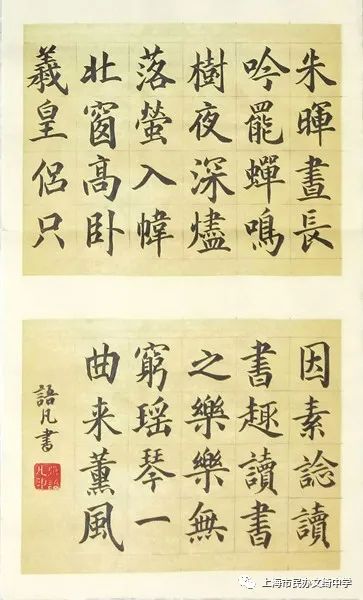 朱暉晝長
吟罷蟬鳴
樹夜深燼
落螢入幃
北窗高卧
羲皇侶只
因素諗讀
書趣讀書
之樂樂無
窮瑶琴一
曲来薰風
語凡書
上海市民办文绮中学